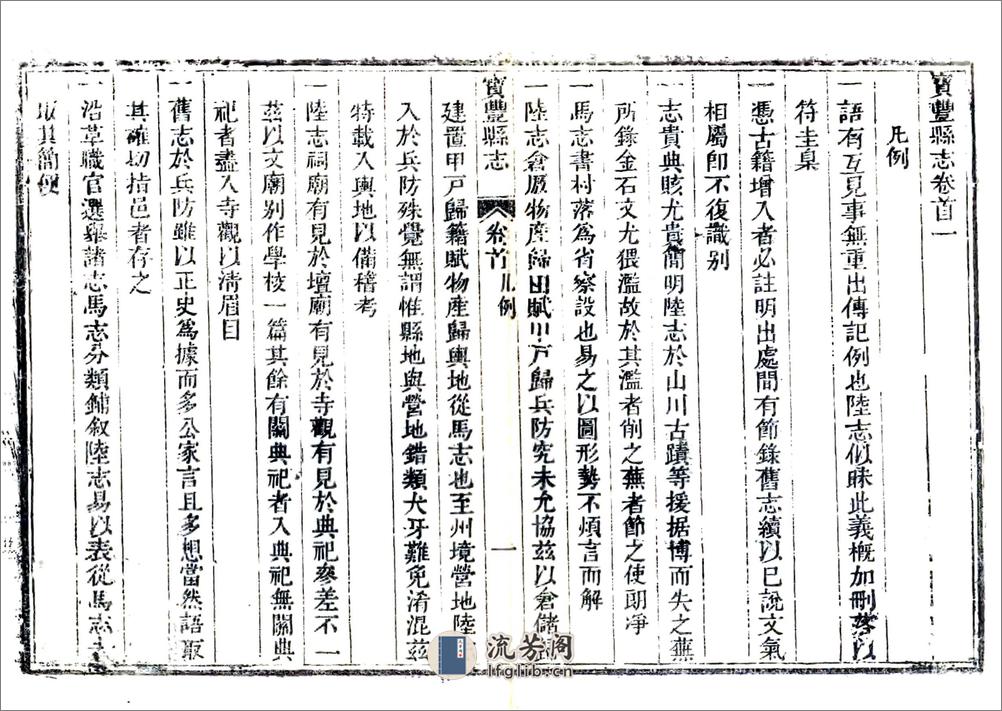 寶豐縣志卷首一
凡例
一語有互見事無重出傳記例也陸志似昧此義概加刪落以
符圭臬
一憑古籍增入者必註明出處間有節錄舊志續以已說文氣
相屬卽不復識别
一志貴典賅尤貴簡明陸志於山川古蹟等援据博而失之蕪
所錄金石文尤猥濫故於其濫者削之蕪者節之使朗淨
一馬志書村落為省察設也易之以圖形勢不煩言而解
一陸志倉厫物産歸田賦甲戸歸兵防究未允協茲以倉儲歸
寶豐縣志
卷首 凡例
一
建置甲戸歸籍賦物産歸輿地從馬志也至州境營地陸
入於兵防殊覺無謂惟縣地與營地錯類犬牙難免淆混茲
特載入輿地以備稽考
一陸志祠廟有見於壇廟有見於寺觀有見於典祀參差不一
茲以文廟别作學校一篇其餘有關典祀者入典祀無關典
祀者盡入寺觀以清眉目
一舊志於兵防雖以正史為據而多公家言且多想當然語取
其確切指邑者存之
一沿革職官選舉諸志馬志分類鋪叙陸志易以表從馬志
取其簡便
流芳阁
lfglib.cn